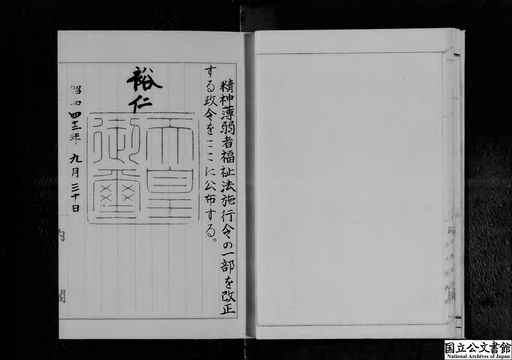 精神薄弱者福祉法施行令の一部を改正
する政令をここに公布する。
裕仁
天皇
御璽
昭和四十三年九月三十日
内閣
国立公文書館
National Archives of Japan